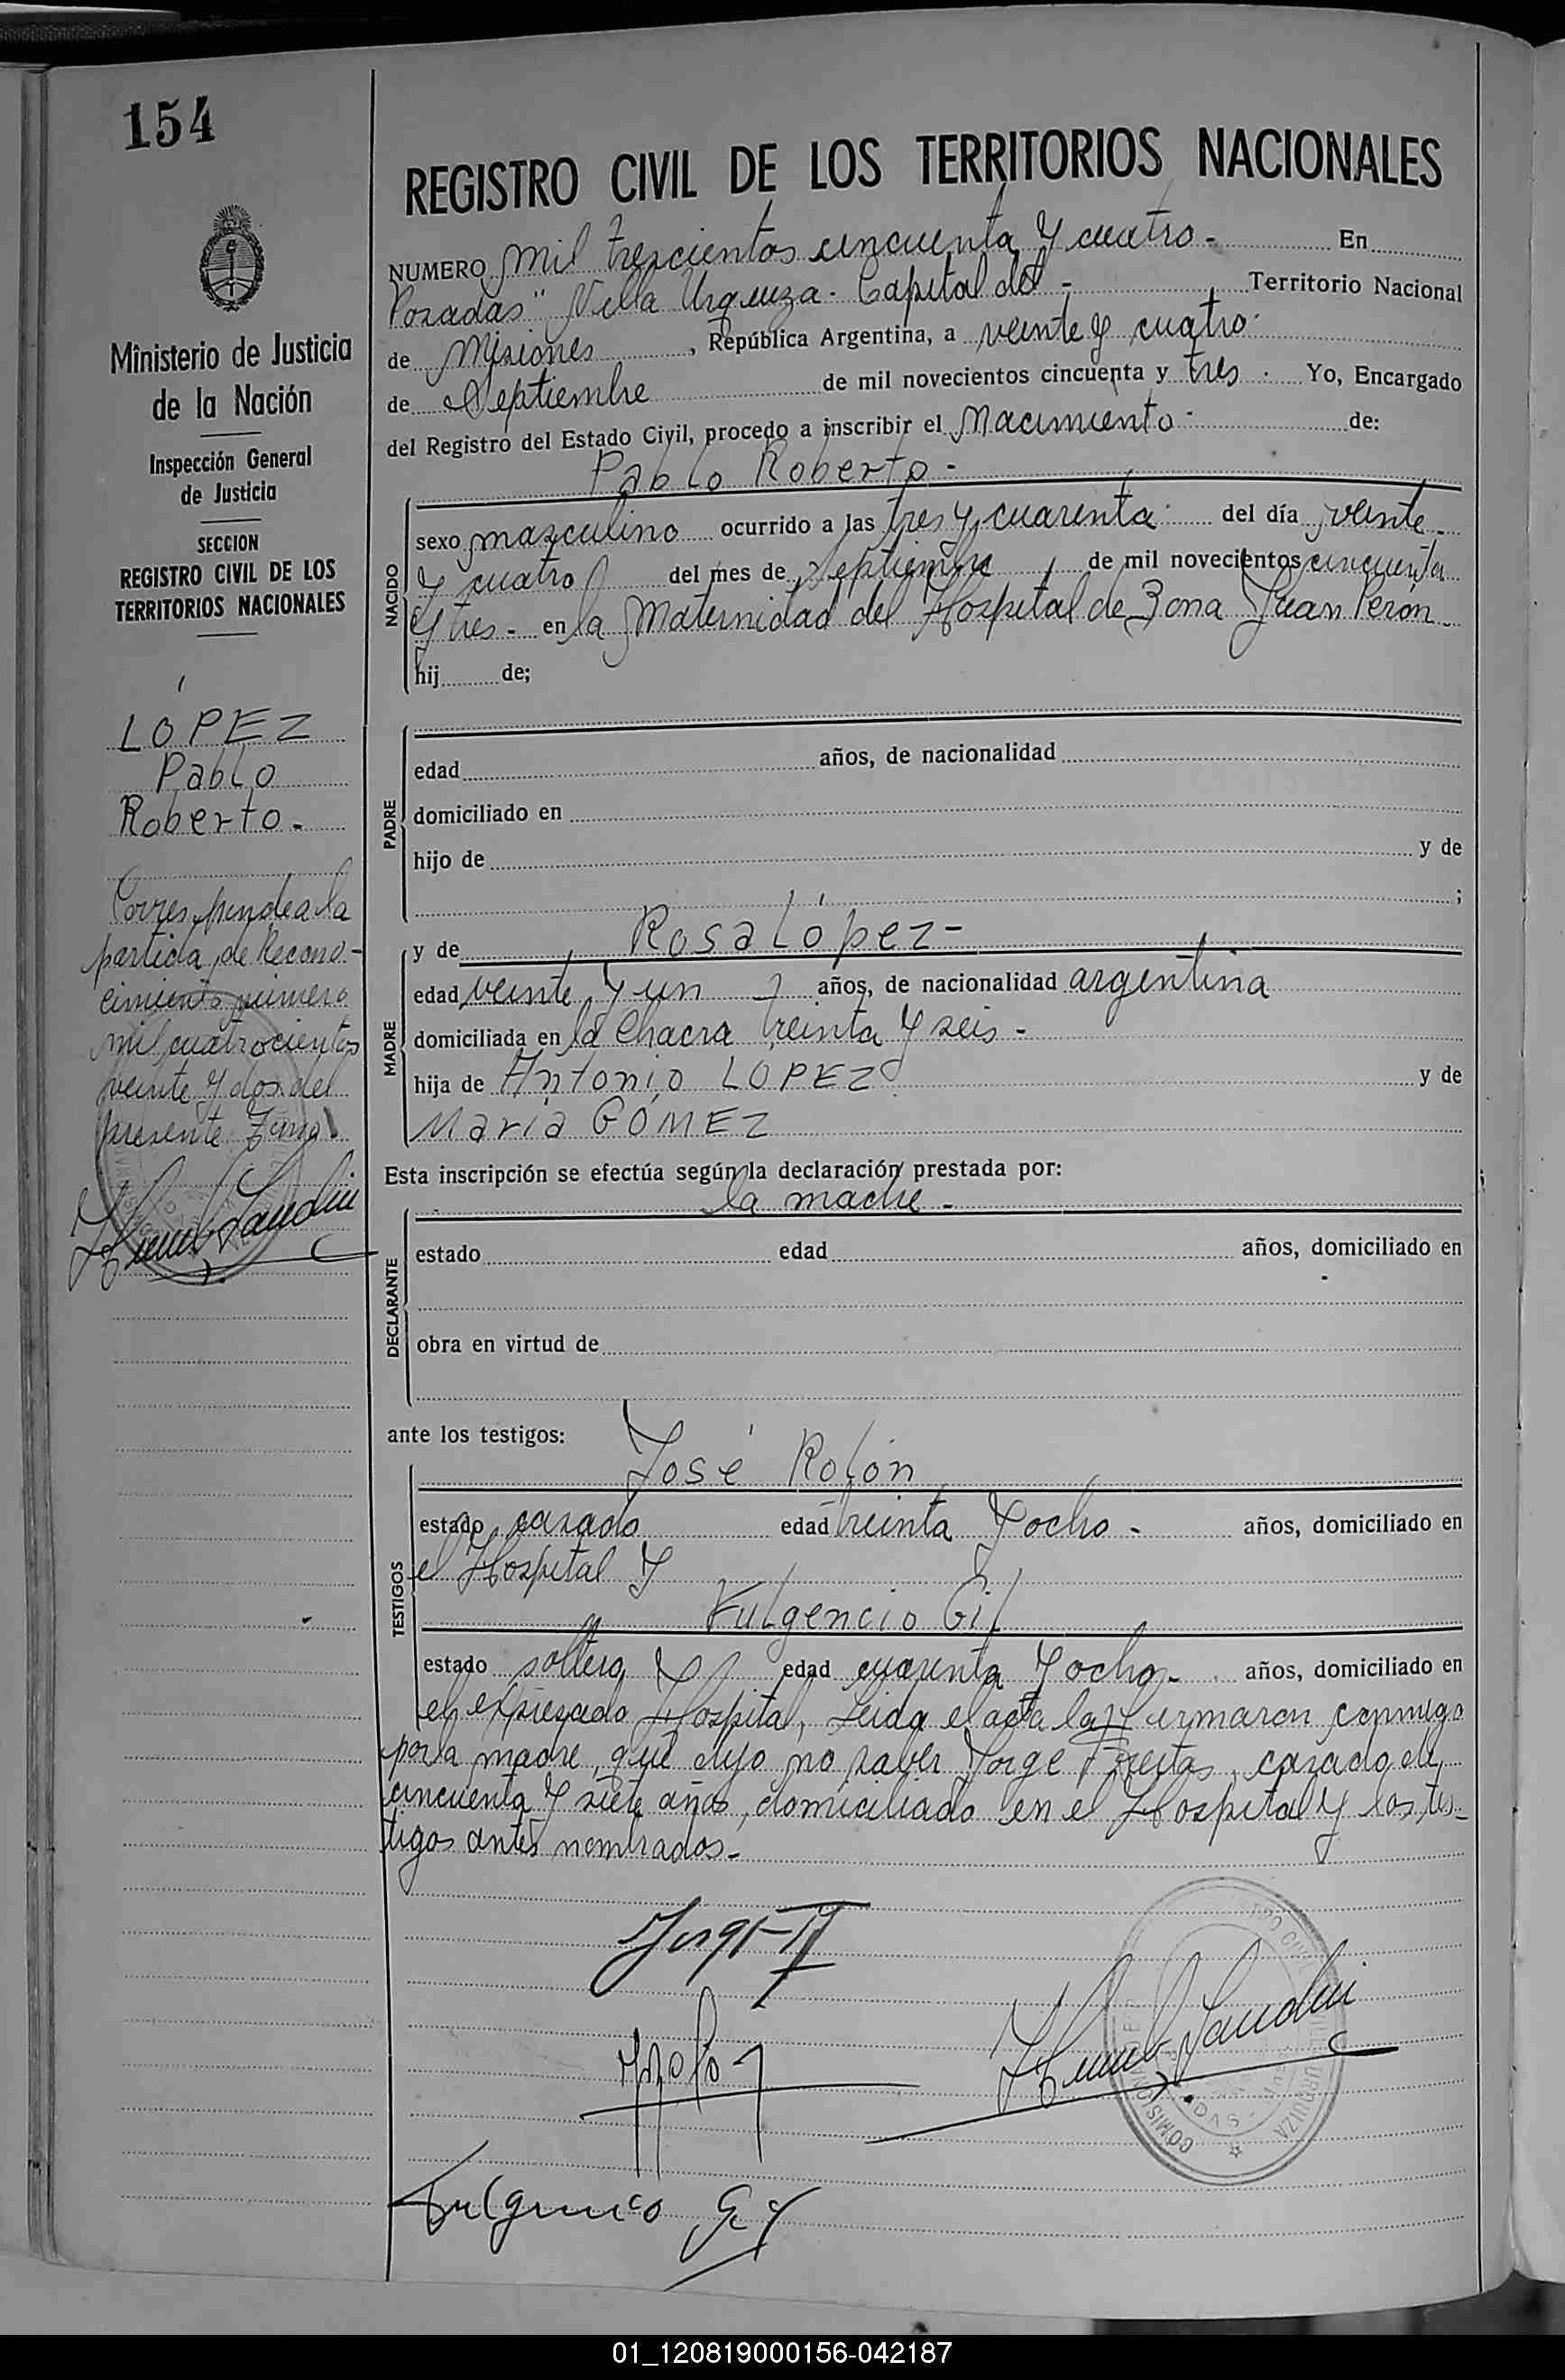 154
Ministerio de Justicia
de la Nación
Inspección General
de Justicia
SECCION
REGISTRO CIVIL DE LOS
TERRITORIOS NACIONALES
LÓPEZ
Pablo
Roberto.-
Corresponde a la
partida de Recono-
cimiento número
mil cuatrocientos
veinte y dos del
presente Tomo
REGISTRO CIVIL DE LOS TERRITORIOS NACIONALES
NUMERO mil trescientos cincuenta y cuatro.- En
Posadas "Villa Urquiza- Capital del - Territorio Nacional
de Misiones, República Argentina, a veinte y cuatro-
de Septiembre de mil novecientos cincuenta y tres. Yo, Encargado
del Registro del Estado Civil, procedo a inscribir el Nacimiento- de:
Pablo Roberto-
NACIDO
sexo masculino ocurrido a las tres y cuarenta- del día veinte
y cuatro del mes de Septiembre, de mil novecientos cincuenta
y tres- en la Maternidad del Hospital de Zona Juan Perón-
hij de;
PADRE
edad años, de nacionalidad
domiciliado en
hijo de y de
;
MADRE
y de Rosa López-
edad veinte y un años, de nacionalidad argentina
domiciliada en la Chacra treinta y seis-
hija de Antonio LOPEZ y de
María GÓMEZ
Esta inscripción se efectúa según la declaración prestada por:
la madre-
DECLARANTE
estado edad años, domiciliado en
obra en virtud de
ante los testigos:
TESTIGOS
José Rolón
estado casado edad treinta y ocho- años, domiciliado en
el Hospital y
Fulgencio Gil
estado soltero edad cuarenta y ocho- años, domiciliado en
el expresado Hospital, Leida el acta la firmaron conmigo
por la madre, que dijo no saber Jorge Freitas, casado de
cincuenta y siete años, domiciliado en el Hospital y los tes-
tigos antes nombrados.-
Fulgencio Gil
URQUIZA
01_120819000156-042187